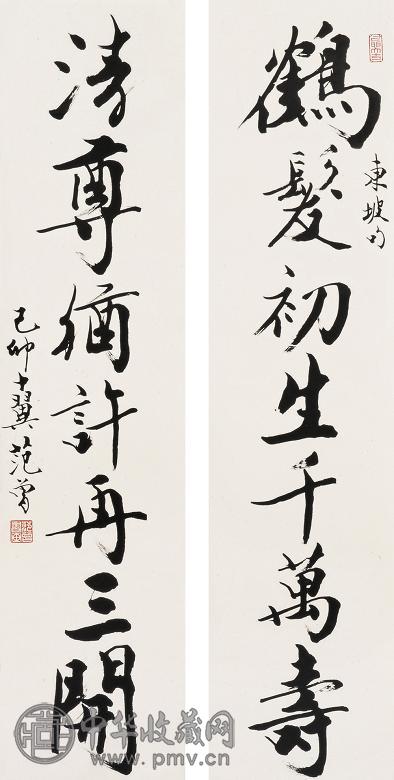 鶴髮初生千萬壽
東坡句
清尊猶許再三開
己卯十翼范曾
中华收藏网
www.pmv.cn